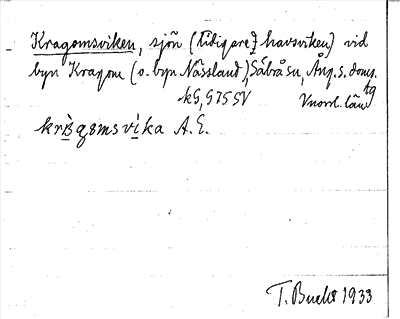 Kragomsviken, sjön (tidigare havsviken) vid
byn Kragom (o. byn Nässland), Säbrå sn, Ång. s. doms.
tg
kS, G75SV Vnorrl. län
A. E.
T. Bucht 1933